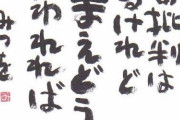 批判は
るけれど
まえどう
われれば
みつを